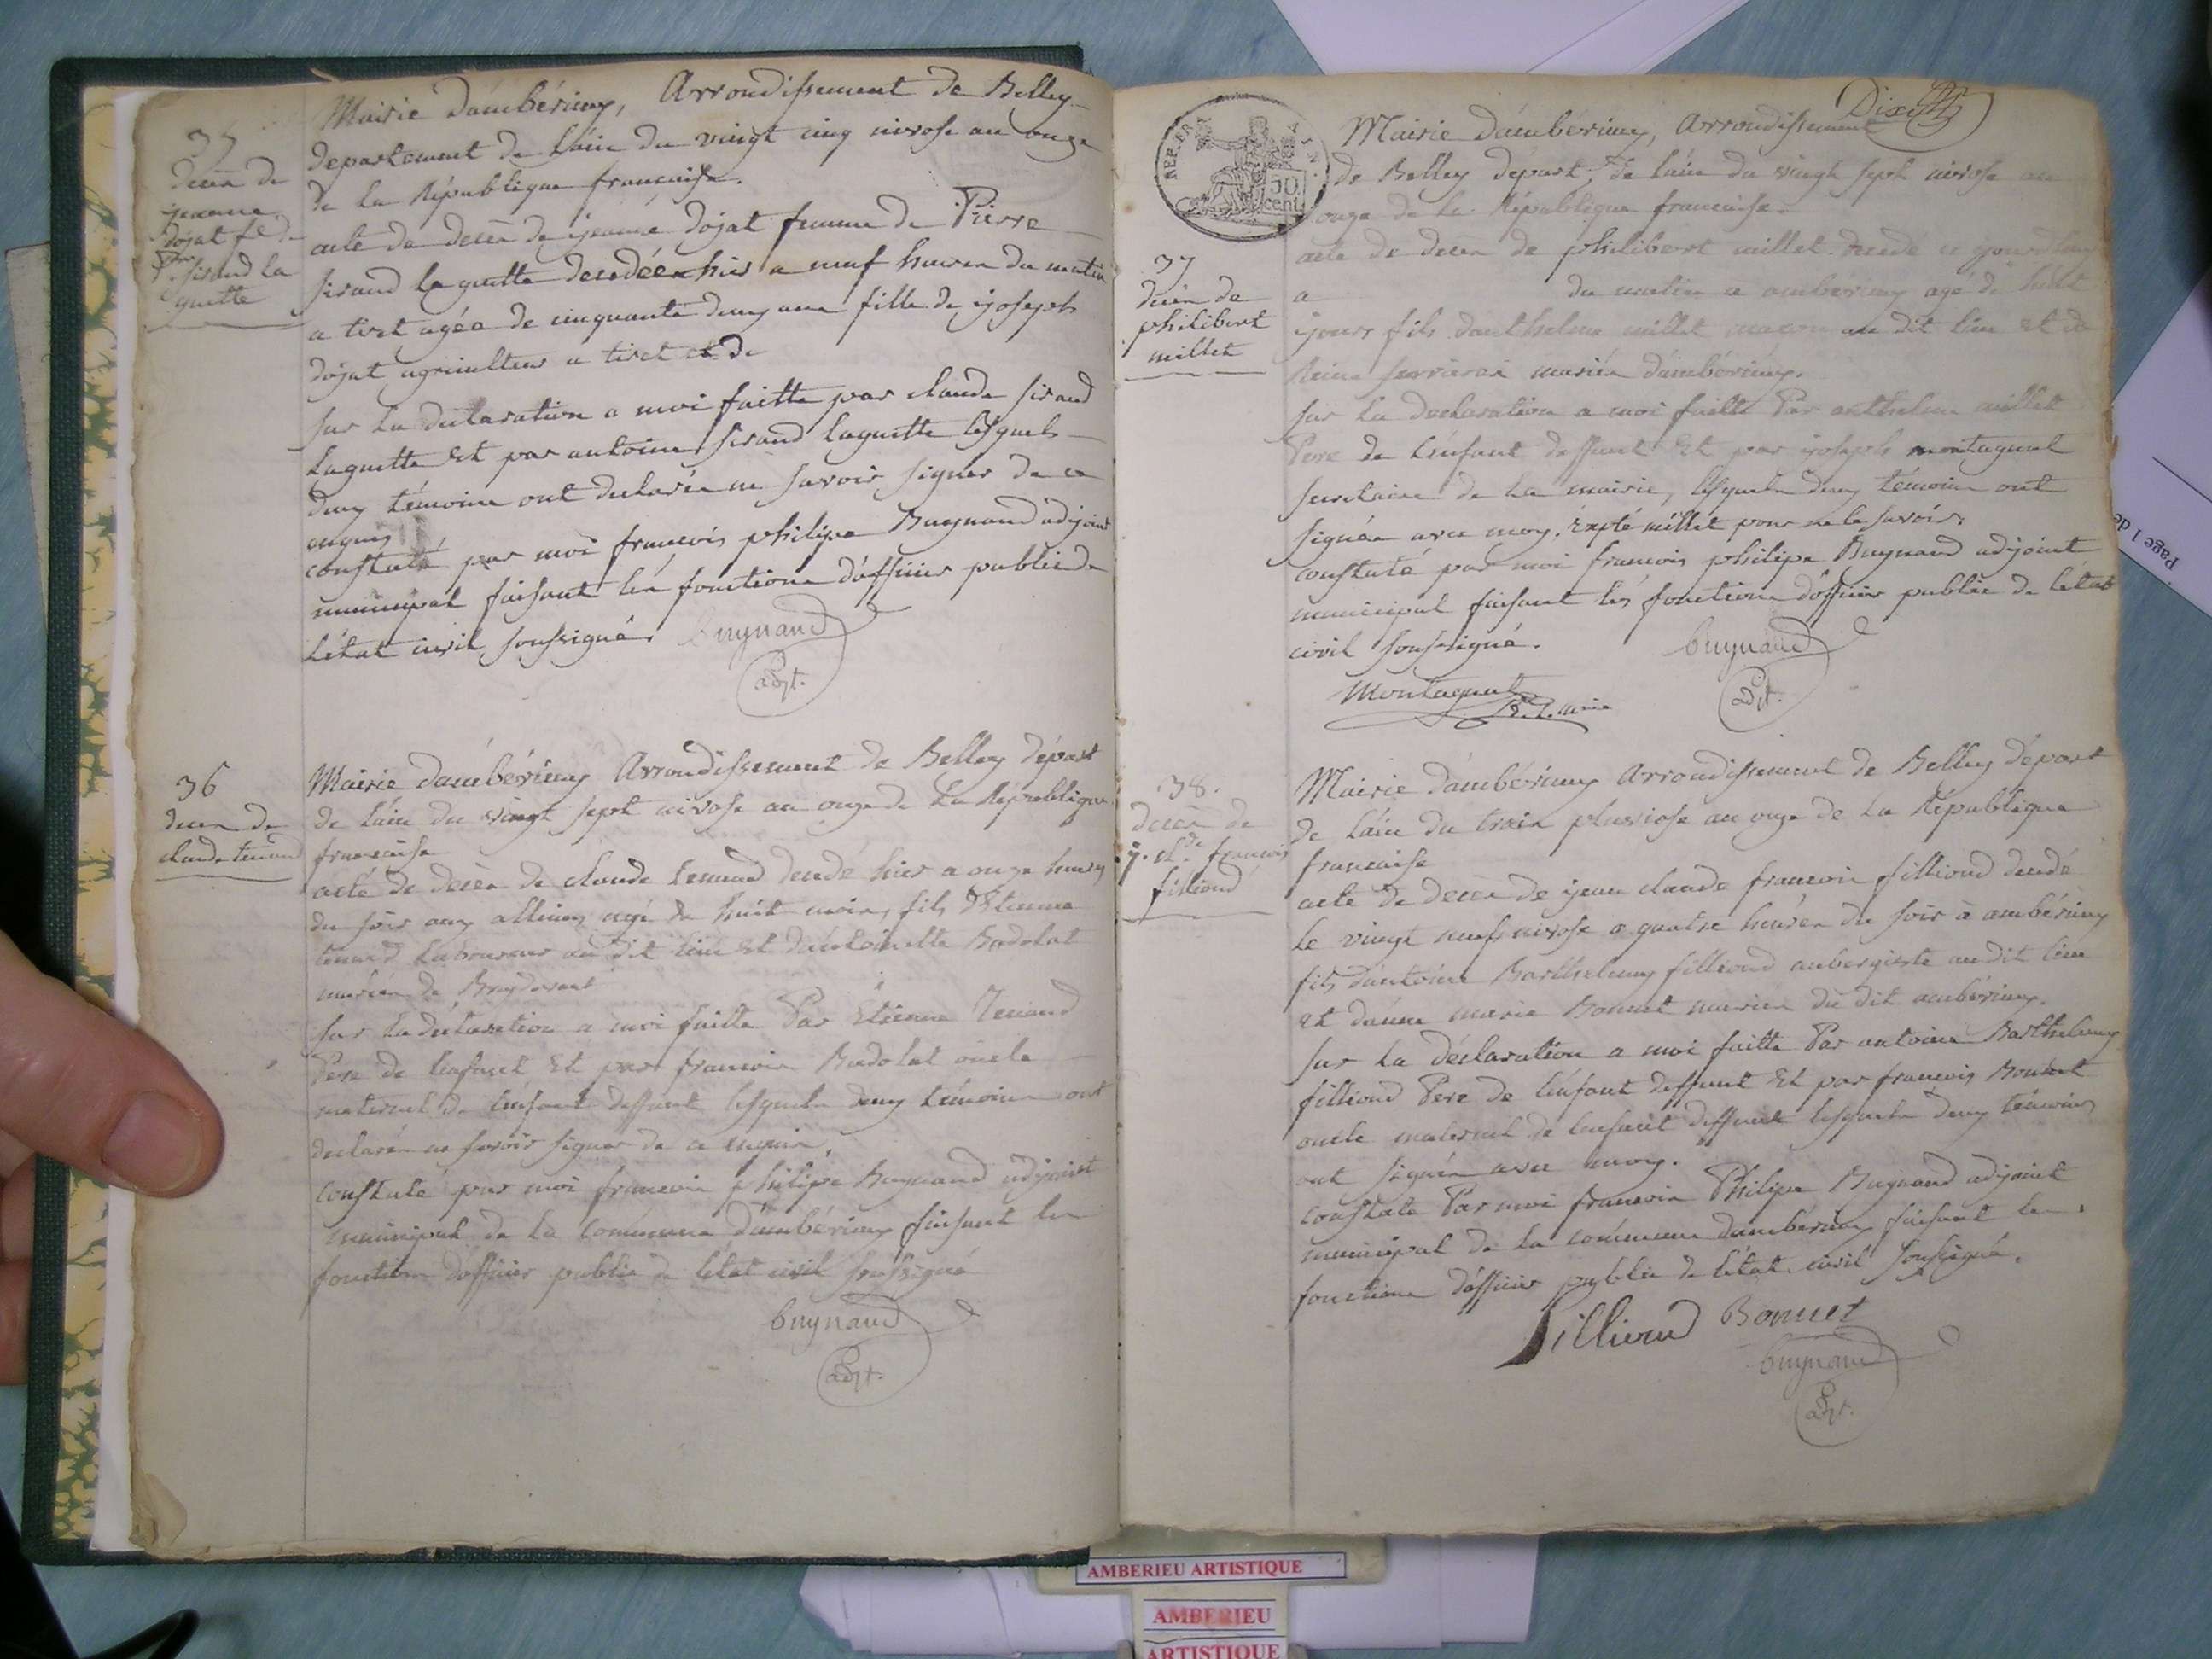 Mairie d'ambérieux, Arrondissement de Belley
departement de l'ain du vingt cinq nivose an onze
de la République française.
acte de decès de jeanne Dojat femme de Pierre
sirand laguette decedée hier a neuf heures du matin
a tiret agée de cinquante deux ans fille de joseph
dojat agriculteur a tiret et de
sur la declaration a moi faitte par claude sirand
laguette Et par antoine sirand laguette lesquels
deux témoins ont declarés ne savoir signer de ce
enquis
constaté par moi francois philipe Buynand adjoint
municipal faisant les fonctions d'officier public de
l'état civil soussigné. buynand
adjt.
decès de
jeanne
dojat fe de
sirand la
guette
36
decès de
claude tenand
Mairie d'ambérieux Arrondissement de Belley dépar.t
de l'ain du vingt sept nivose an onze de La République
francaise
acte de decès de claude tenand decede hier a onze heures
du soir aux allimes agé de huit mois, fils d'Etienne
tenand laboureur au dit lieu Et d'antoinette Badolat
mariés de
sur la declaration a moi faitte Par Etienne Tenand
Pere de l'enfant Et par francois Badolat oncle
maternel de l'enfant deffunt lesquels deux témoins ont
declarés ne savoir signer de ce enquis,
constaté par moi francois philipe Buynand adjoint
municipal de la commune d'ambérieux faisant les
fonctions d'officier public de l'état civil soussigné
buynand
adjt.
Dix
REP. FRA.
50
cent.
Mairie d'ambérieux, Arrondissement
de Belley départ.t de l'ain du vingt sept nivose an
onze de la République francaise.
acte de decès de philibert millet decede ce jourdhuy
a du matin a ambérieux agé de huit
jours fils d'anthelme millet maçon au dit lieu et de
Reine mariés d'ambérieux.
sur la declaration a moi faitte Par anthelme millet
Pere de l'enfant deffunt Et par joseph montagnat
secretaire de la mairie, lesquels deux témoins ont
signés avec moy. Expté millet pour ne le savoir.
constaté par moi francois philipe Buynand adjoint
municipal faisant les fonctions d'officier public de l'état
civil soussigné. buynand
Montagnat adjt.
37
decès de
philibert
millet
38.
decès de
j. cl.de francois
filliond
Mairie d'ambérieux Arrondissement de Belley dépar.t
de l'ain du trois pluviose an onze de La République
francaise
acte de decès de jean claude francois filliond decede
le vingt neuf nivose a quatre heures du soir à ambérieux
fils d'antoine Barthelemy filliond aubergiste audit lieu
et d'anne marie Bonnet mariés du dit ambérieux.
sur la déclaration a moi faitte Par antoine Barthelemy
filliond Pere de l'enfant deffunt Et par francois Bonnet
oncle maternel de l'enfant deffunt lesquels deux témoins
ont signés avec moy.
constaté Par moi francois Philipe Buynand adjoint
municipal de la commune d'ambérieux faisant les
fonctions d'officier public de l'état civil soussigné.
filliond Bonnet
buynand
adjt.
Page 1 de
AMBERIEU ARTISTIQUE
AMBERIEU
ARTISTIQUE